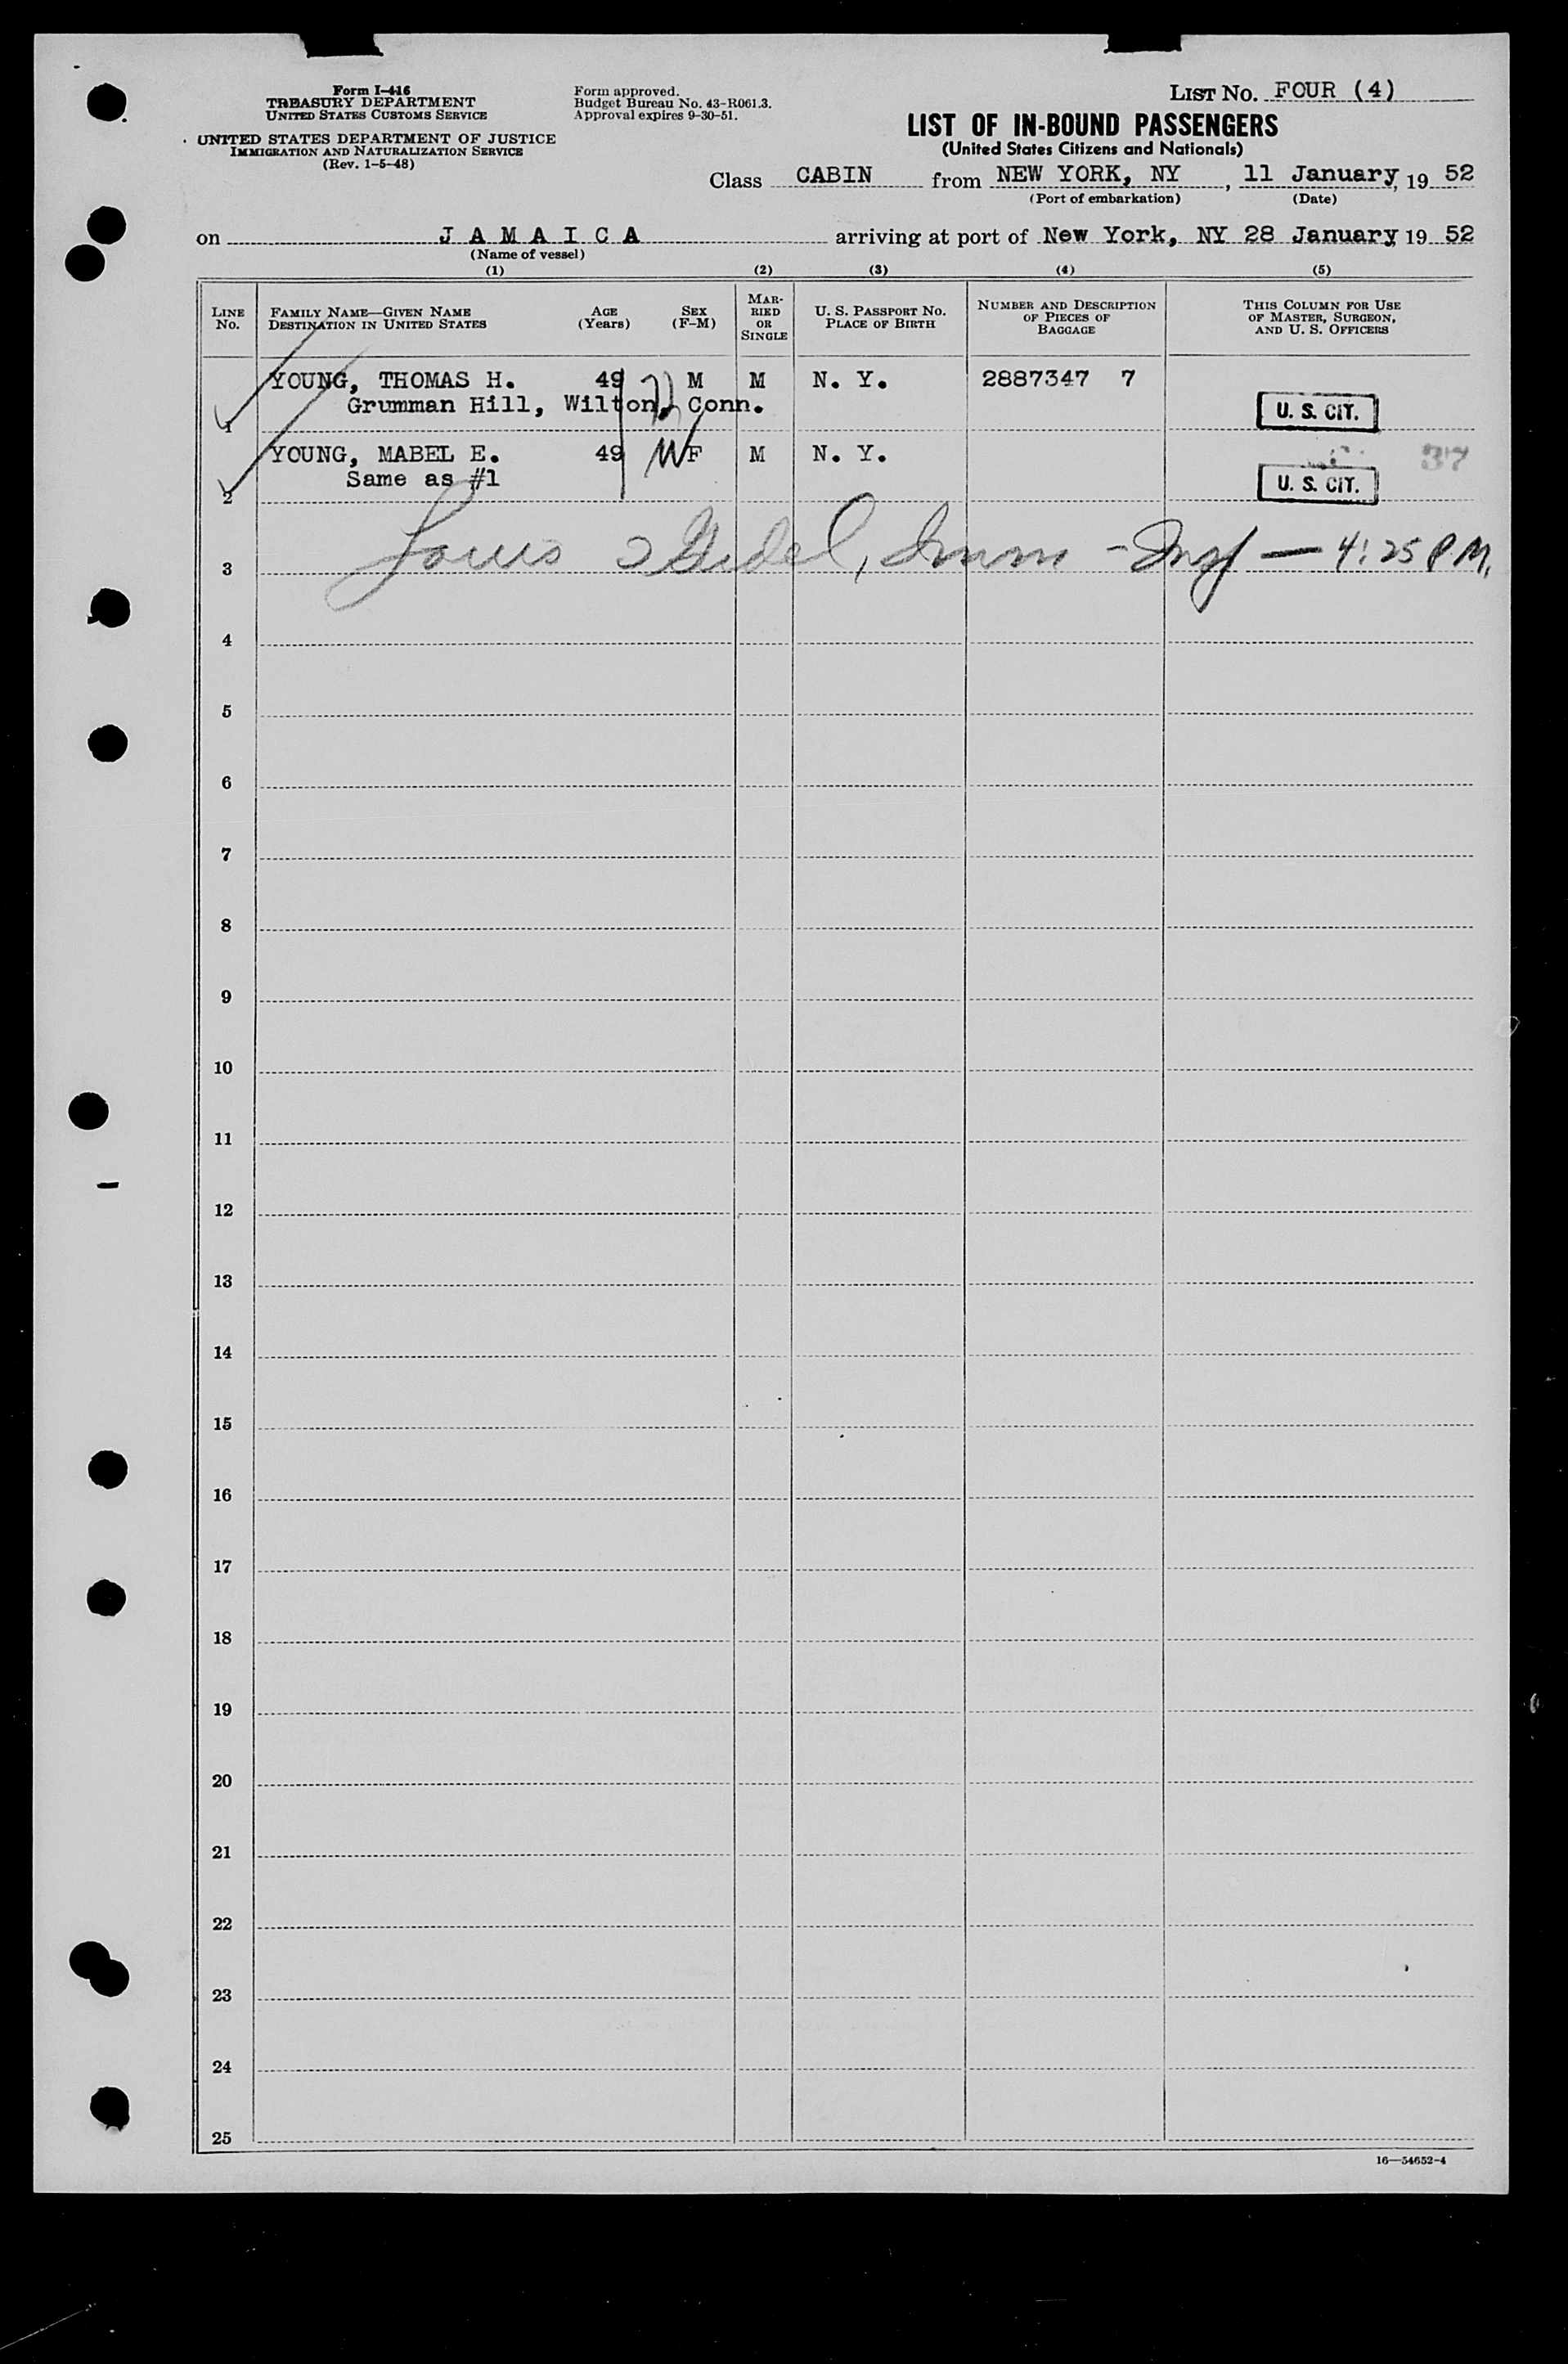 Form I-416
TREASURY DEPARTMENT
UNITED STATES CUSTOMS SERVICE
UNITED STATES DEPARTMENT OF JUSTICE
IMMIGRATION AND NATURALIZATION SERVICE
(Rev. 1-5-48)
Form approved.
Budget Bureau No. 43-R061.3.
Approval expires 9-30-51.
LIST No. FOUR (4)
LIST OF IN-BOUND PASSENGERS
(United States Citizens and Nationals)
Class CABIN from NEW YORK, NY, 11 January, 19 52
(Port of embarkation) (Date)
on J A M A I C A arriving at port of New York, NY 28 January 19 52
(Name of vessel)
(1) (2) (3) (4) (5)
LINE No. FAMILY NAME—GIVEN NAME DESTINATION IN UNITED STATES AGE (Years) SEX (F-M) MARRIED OR SINGLE U. S. PASSPORT NO. PLACE OF BIRTH NUMBER AND DESCRIPTION OF PIECES OF BAGGAGE THIS COLUMN FOR USE OF MASTER, SURGEON, AND U. S. OFFICERS
YOUNG, THOMAS H. 49 M M N. Y. 2887347 7
1 Grumman Hill, Wilton, Conn. U. S. CIT.
YOUNG, MABEL E. 49 F M N. Y. 37
2 Same as #1 U. S. CIT.
3 Louis Imm - Insp — 4:25 PM.
4
5
6
7
8
9
10
11
12
13
14
15
16
17
18
19
20
21
22
23
24
25
16—54652-4